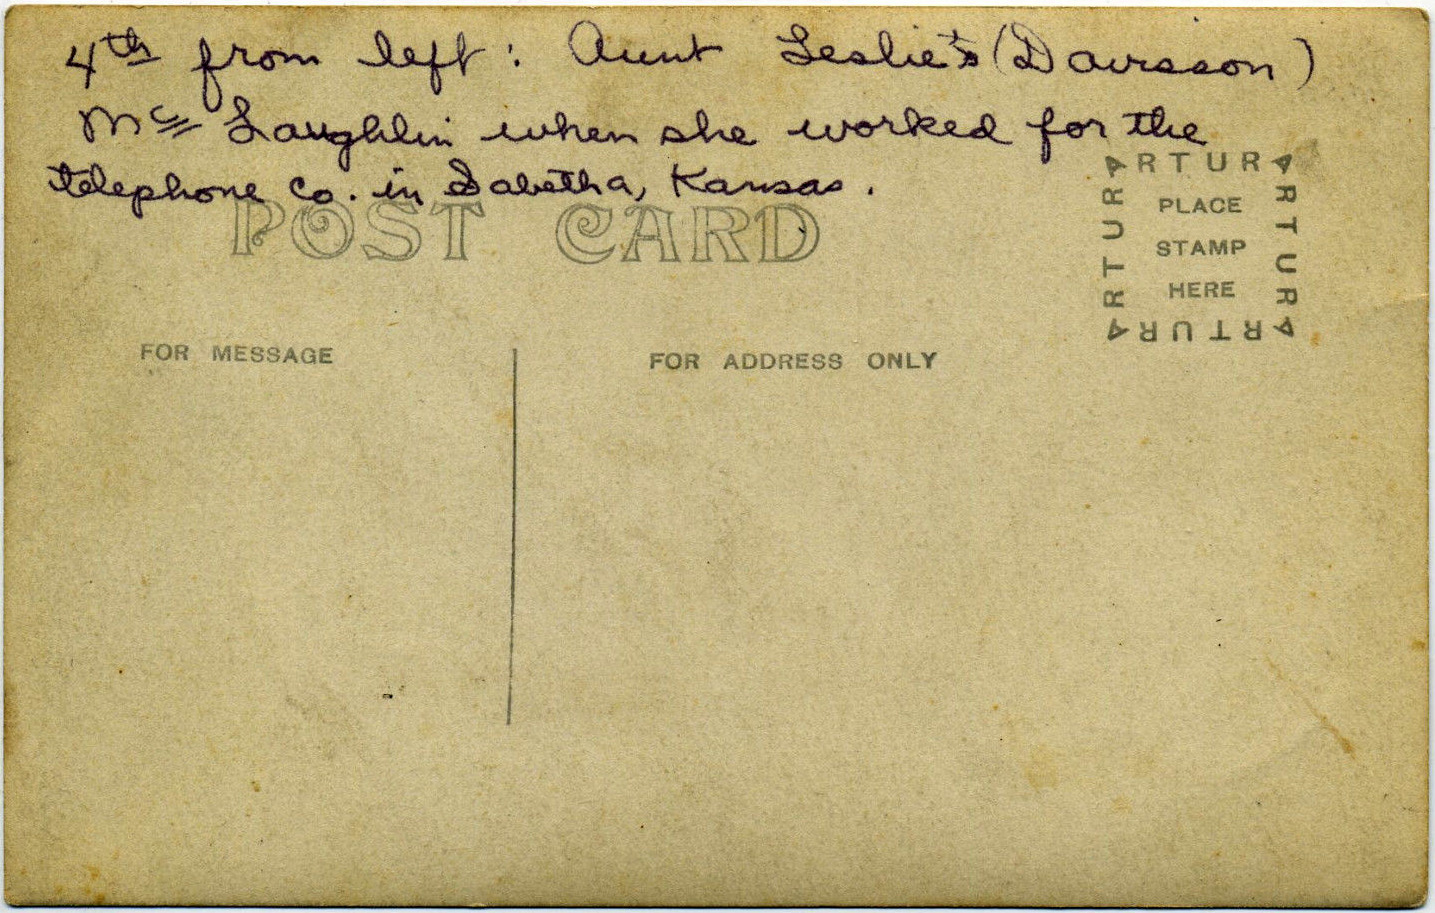 4th from left: Aunt Leslie's (Davisson)
Mc Laughlin when she worked for the
telephone co. in Sabetha, Kansas.
POST CARD
ARTURA
ARTURA
ARTURA
ARTURA
PLACE
STAMP
HERE
FOR MESSAGE
FOR ADDRESS ONLY